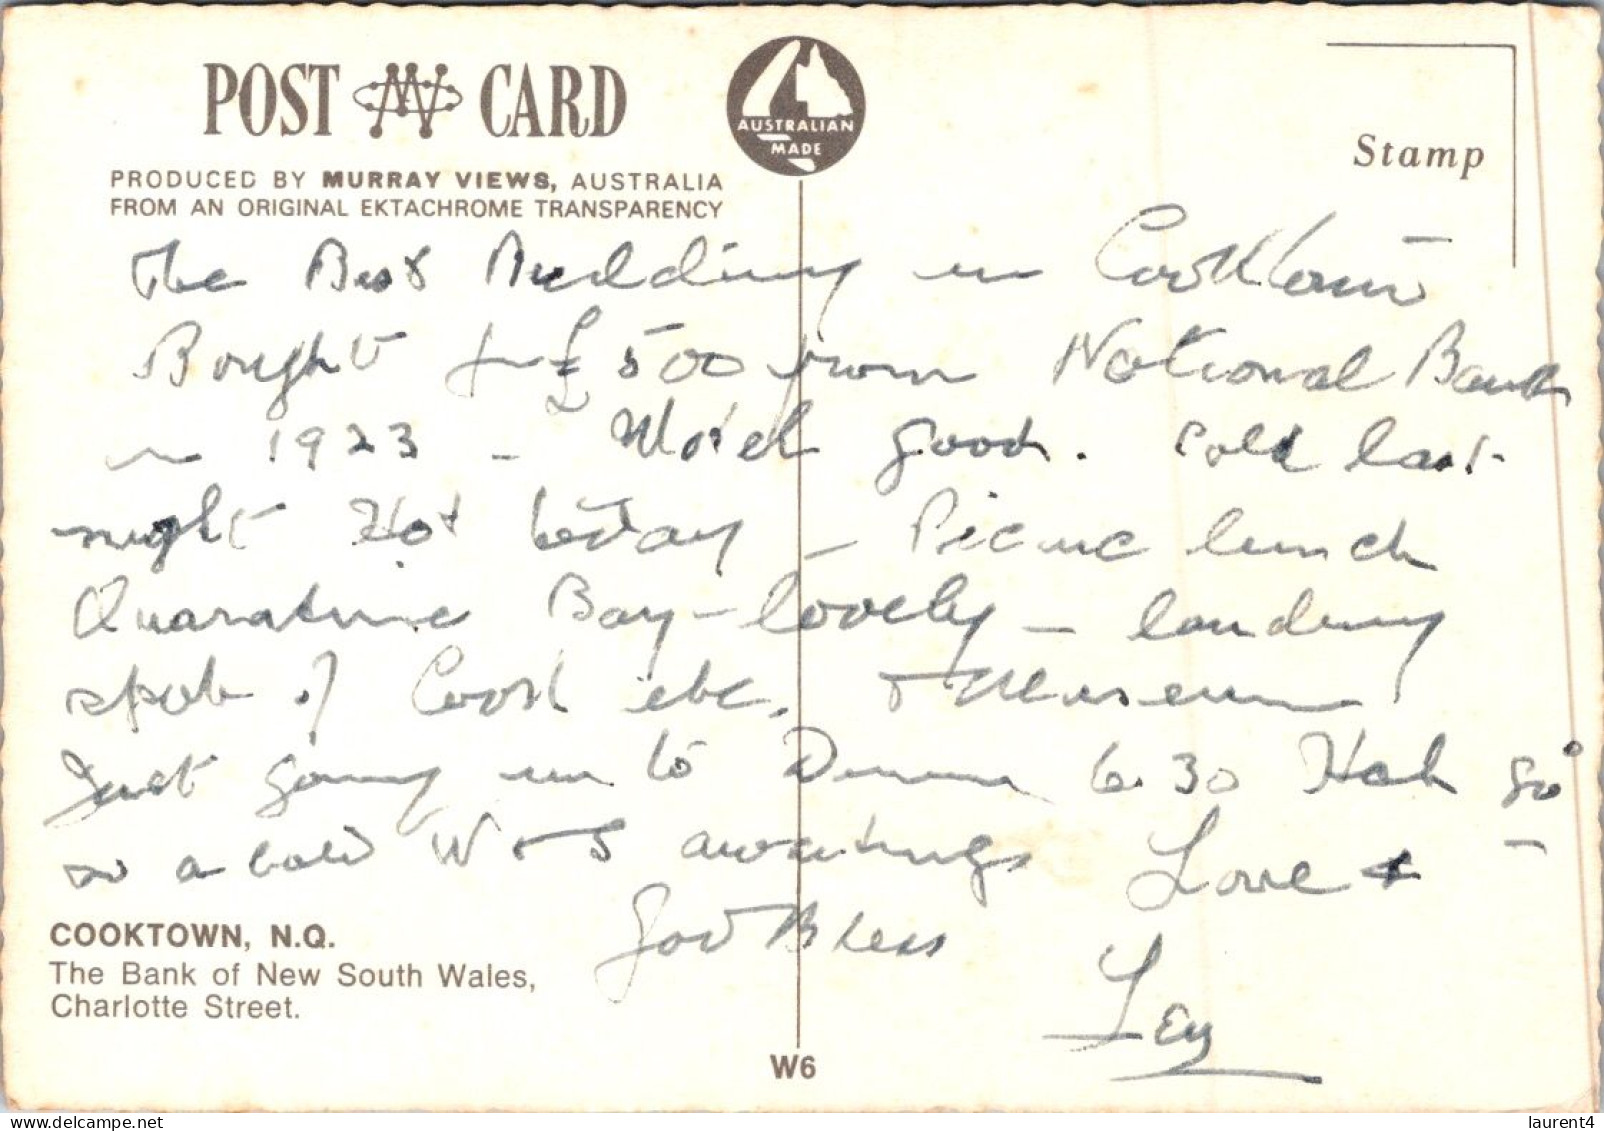 POST CARD
AUSTRALIAN
MADE
Stamp
PRODUCED BY MURRAY VIEWS, AUSTRALIA
FROM AN ORIGINAL EKTACHROME TRANSPARENCY
The Best Building in Cooktown
Bought for £500 from National Bank
in 1923 - Motel good. Cold last
night Hot today - Picnic lunch
Quarantine Bay - lovely - landing
spot of Cook etc. + Museum
Just going in to Dinner 6.30 Hah go
so a cold W + S awaitings Love +
God Bless
Ley
COOKTOWN, N.Q.
The Bank of New South Wales,
Charlotte Street.
W6
laurent4